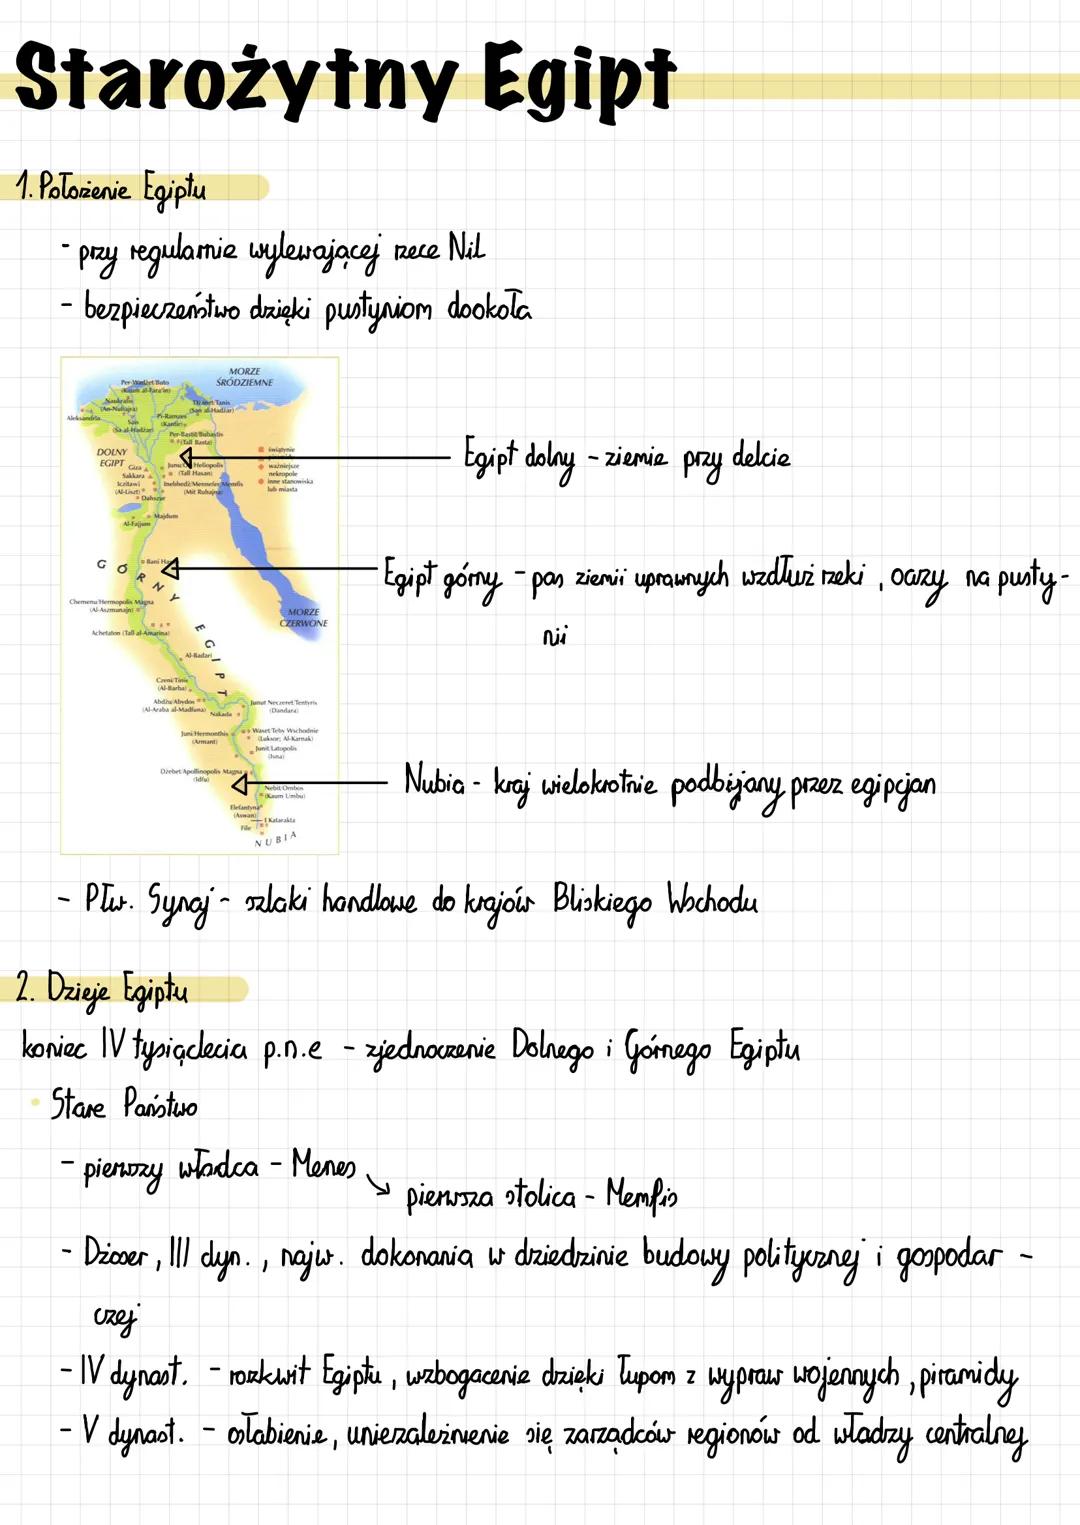 Starożytny Egipt
1. Położenie Egiptu
- przy regularnie wylewającej rzece Nil
- bezpieczeństwo dzięki pustyniom dookoła
MORZE
ŚRÓDZIEMNE
Per-Wadżet/Buto
(Kaum al-Fara'in)
Naukratis
(An-Nuhajra)
Dżanet/Tanis
(San al-Hadżar)
Aleksandria
Sais
(Sa al-Hadżar)
Pi-Ramzes
(Kantir)
Per-Bastit/Bubastis
(Tall Basta)
DOLNY
EGIPT
Giza
Sakkara
Iczitawi
(Al-Liszt)
Dahszur
Heliopolis
(Tall Hasan)
Memfis
(Mit Ruhajna)
świątynie
ważniejsze
nekropole
inne stanowiska
lub miasta
Majdum
Al-Fajjum
Egipt dolny - ziemie przy delcie
Bani
GÓRNY EGIPT
Egipt górny - pas ziemii uprawnych wzdłuż rzeki , oazy na pusty-
nii
Chemenu/Hermopolis Magna
(Al-Aszmunajn)
MORZE
CZERWONE
Achetaton (Tall al-Amarina)
Al-Badari
Czeni/Tinis
(Al-Barba)
Abdżu/Abydos
(Al-Araba al-Madfuna)
Nakada
Junut Neczeret/Tentyris
(Dandara)
Juni/Hermonthis
(Armant)
Waset/Teby Wschodnie
(Luksor; Al-Karnak)
Junit/Latopolis
(Isna)
Dżebet/Apollinopolis Magna
(Idfu)
Nebit/Ombos
(Kaum Umbu)
Elefantyna
(Aswan)
I Katarakta
File
NUBIA
Nubia - kraj wielokrotnie podbijany przez egipcjan
- Płw. Synaj - szlaki handlowe do krajów Bliskiego Wschodu
2. Dzieje Egiptu
koniec IV tysiąclecia p.n.e - zjednoczenie Dolnego i Górnego Egiptu
• Stare Państwo
- pierwszy władca - Menes
pierwsza stolica - Memfis
- Dżoser , III dyn. , najw. dokonania w dziedzinie budowy politycznej i gospodar -
czej
- IV dynast. - rozkwit Egiptu , wzbogacenie dzięki łupom z wypraw wojennych , piramidy
- V dynast. - osłabienie , uniezależnienie się zarządców regionów od władzy centralnej